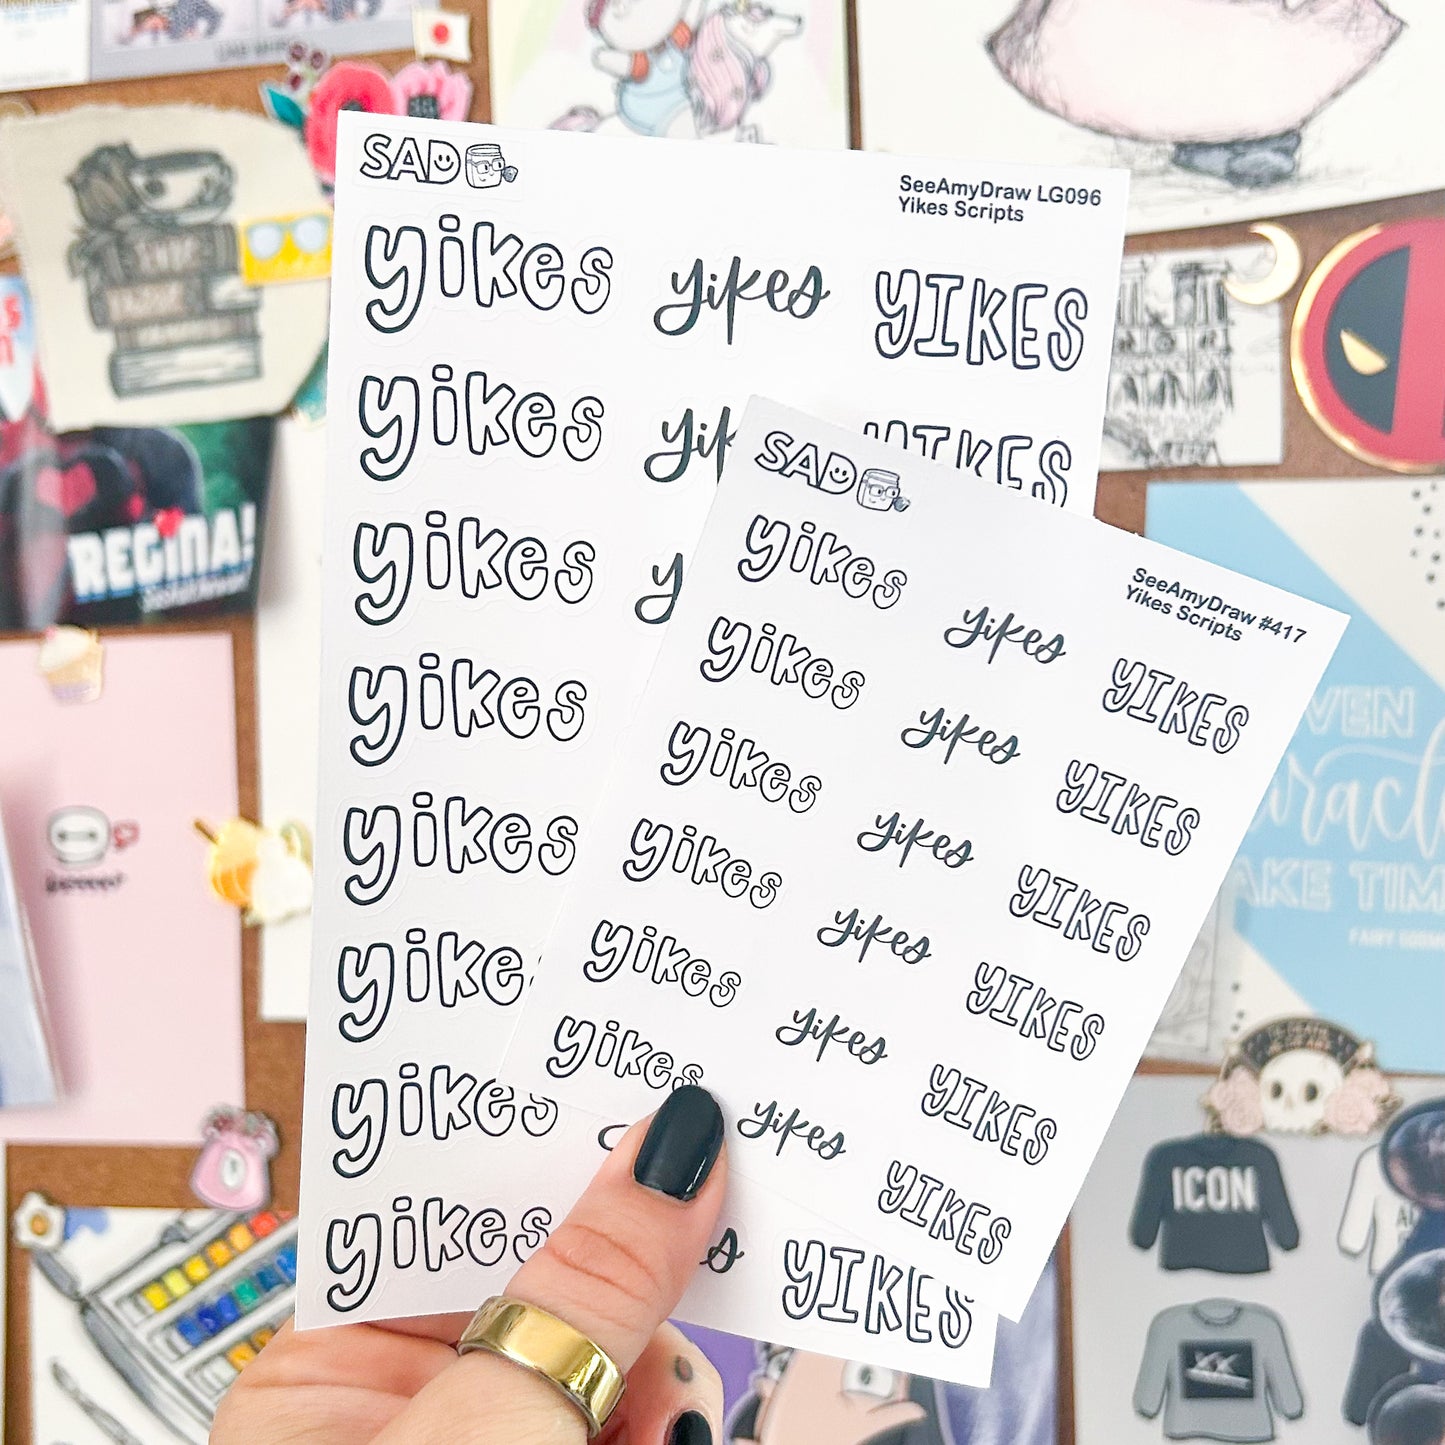 SAD
SeeAmyDraw LG096
Yikes Scripts
yikes yikes YIKES
yikes yik YIKES
yikes y
yikes
yikes
yikes
yikes
yikes YIKES
SAD
SeeAmyDraw #417
Yikes Scripts
yikes yikes YIKES
yikes yikes YIKES
yikes yikes YIKES
yikes yikes YIKES
yikes yikes YIKES
yikes yikes YIKES
REGINA!
VEN
AKE TIM
ICON